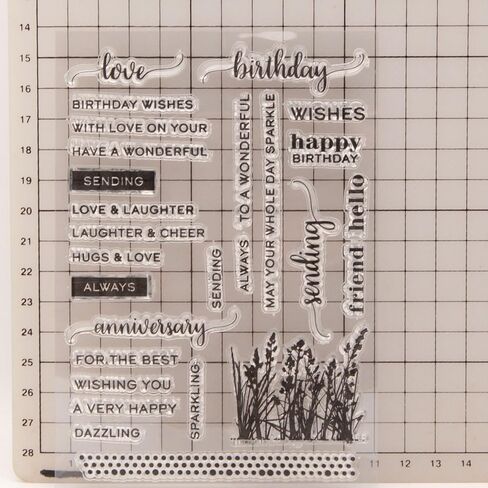 love
birthday
BIRTHDAY WISHES
WITH LOVE ON YOUR
HAVE A WONDERFUL
SENDING
LOVE & LAUGHTER
LAUGHTER & CHEER
HUGS & LOVE
ALWAYS
SENDING
ALWAYS
TO A WONDERFUL
MAY YOUR WHOLE DAY SPARKLE
WISHES
happy
BIRTHDAY
sending
hello
friend
anniversary
FOR THE BEST
WISHING YOU
A VERY HAPPY
DAZZLING
SPARKLING
14
15
16
17
18
19
20
21
22
23
24
25
26
27
28
1
11
12
13
14